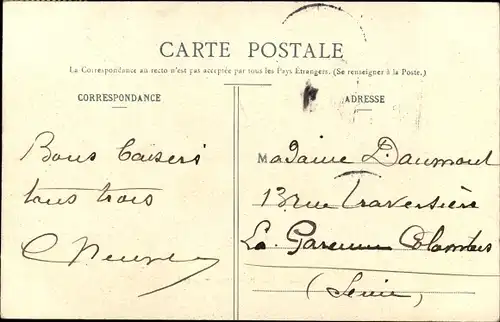 CARTE POSTALE
La Correspondance au recto n'est pas acceptée par tous les Pays Étrangers. (Se renseigner à la Poste.)
CORRESPONDANCE
Bons baisers
tous trois
ADRESSE
Madame Daumont
13 rue Traversière
La Garenne Colombes
(Seine)